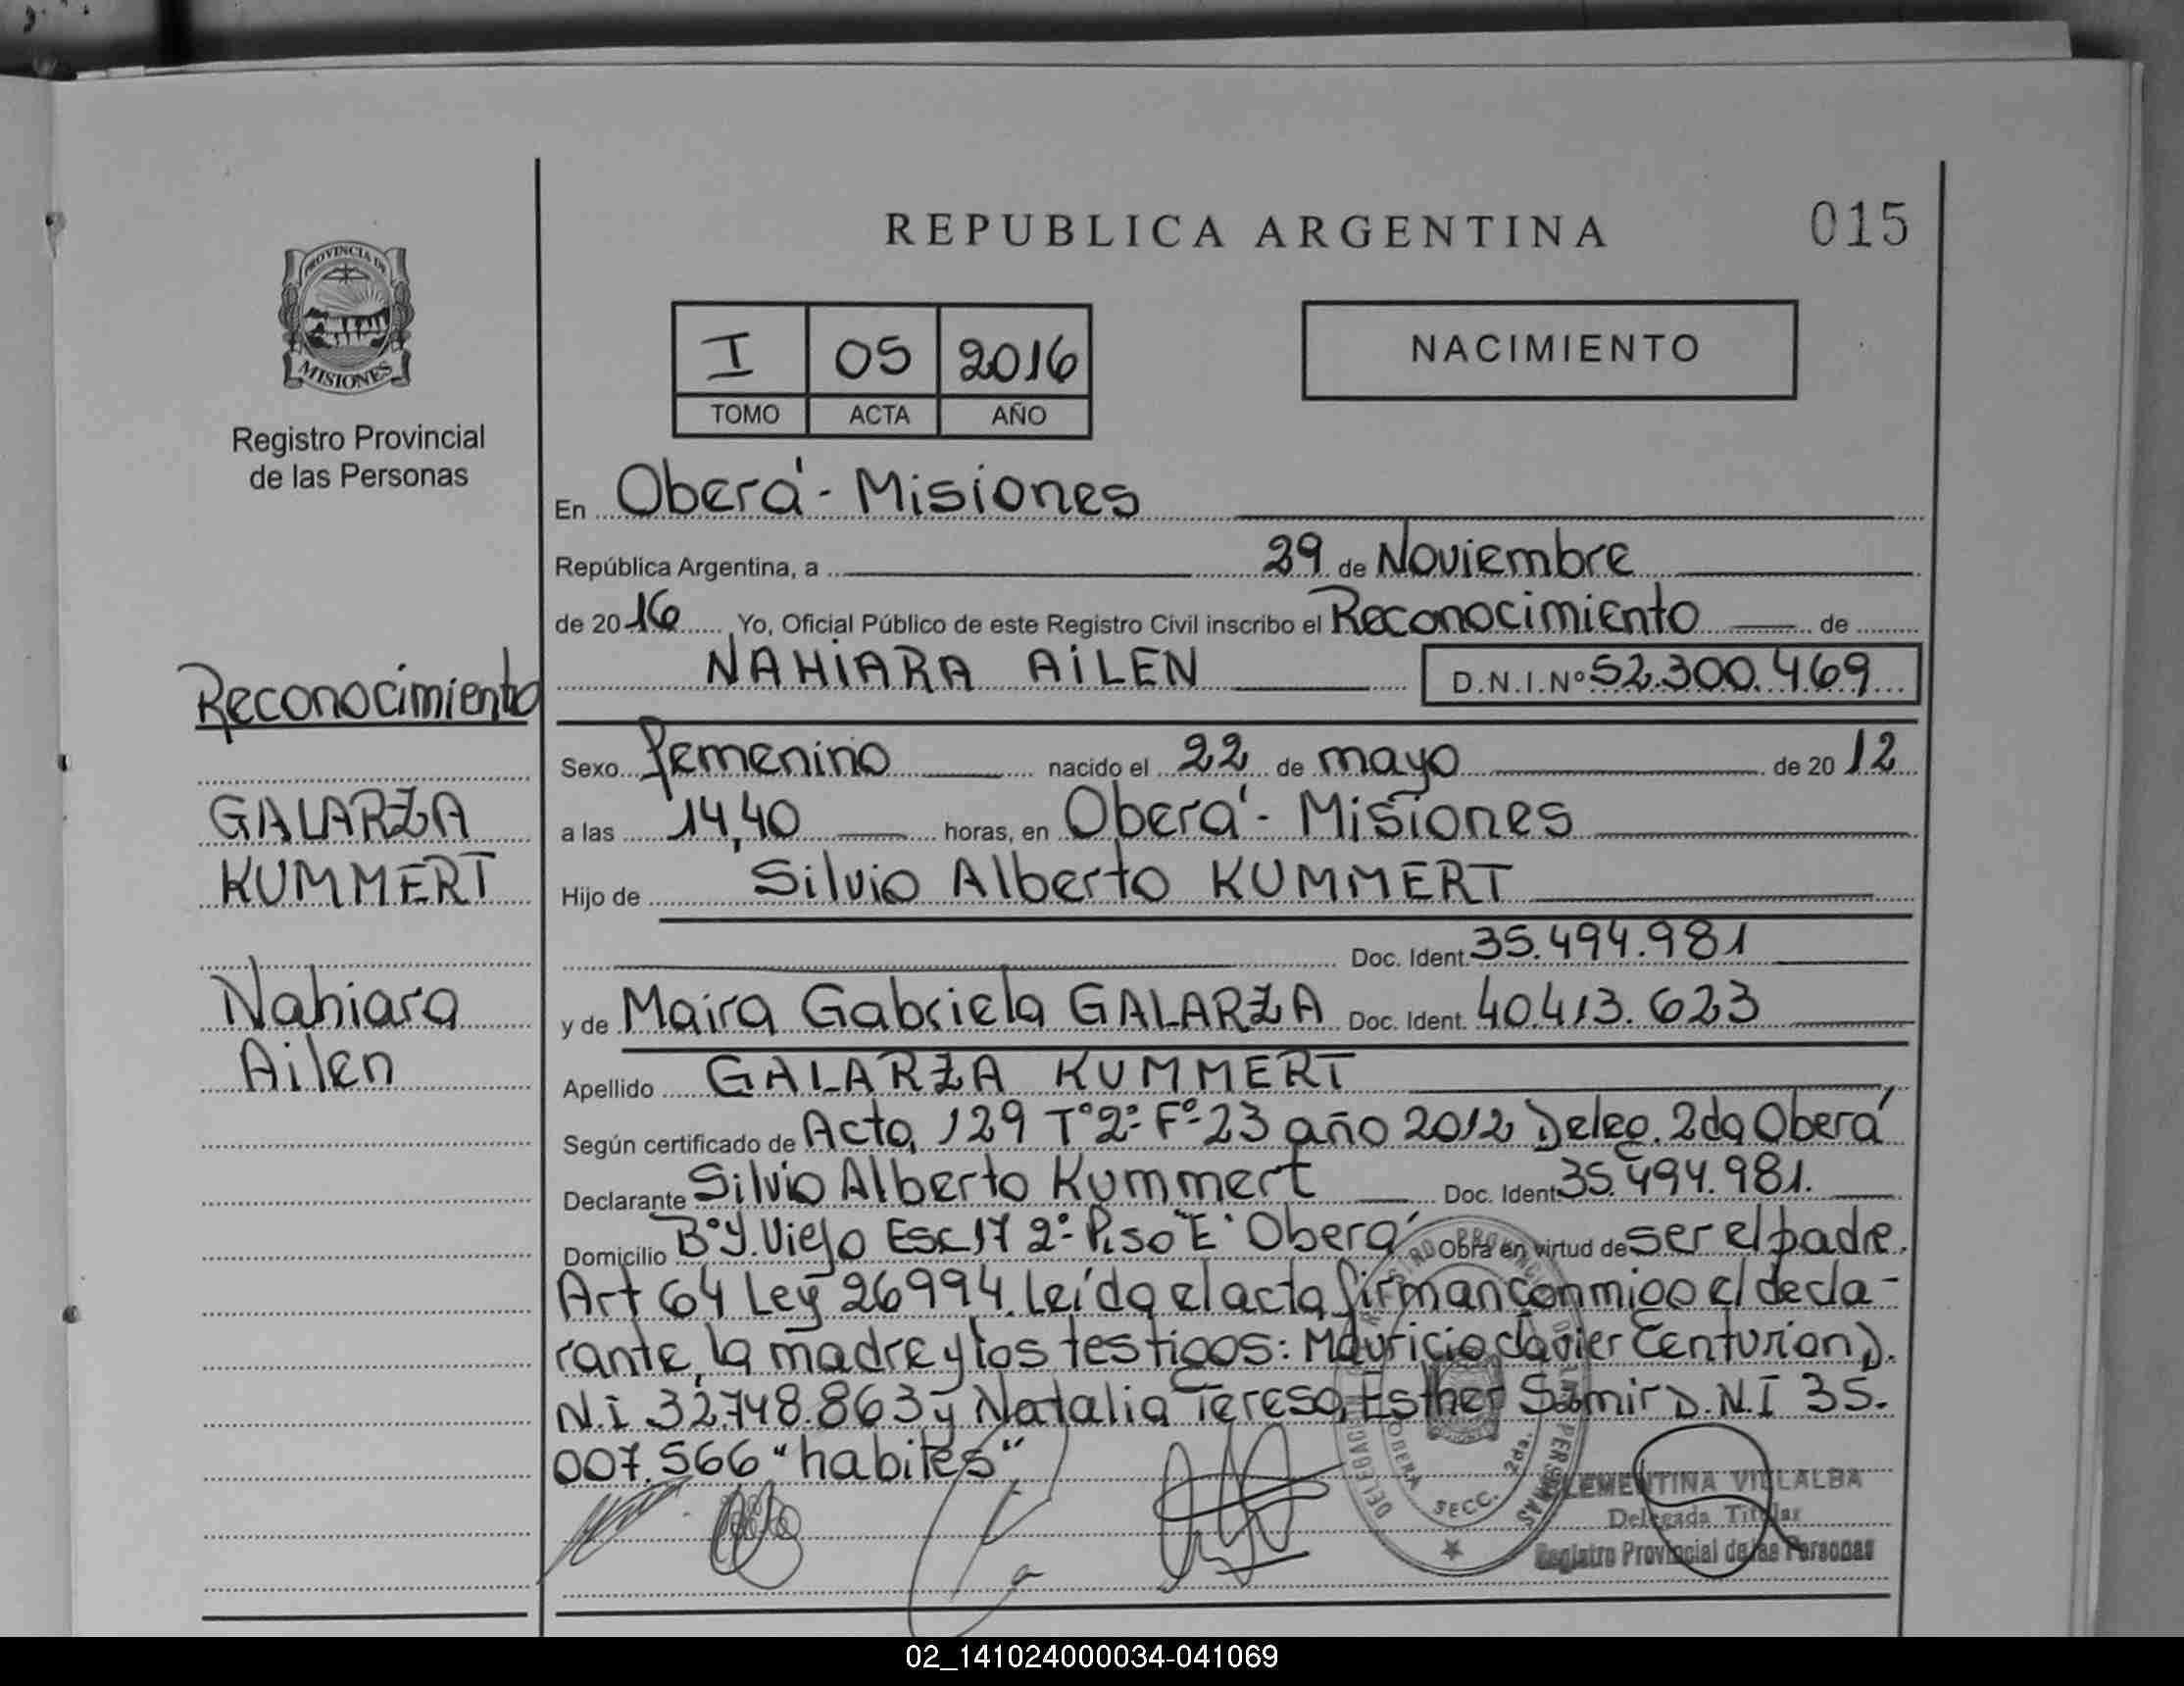 REPUBLICA ARGENTINA
015
PROVINCIA DE
MISIONES
Registro Provincial
de las Personas
I 05 2016
TOMO ACTA AÑO
NACIMIENTO
En Oberá - Misiones
República Argentina, a 29 de Noviembre
de 2016 Yo, Oficial Público de este Registro Civil inscribo el Reconocimiento de
NAHIARA AILEN D.N.I.Nº 52.300.469
Reconocimiento
GALARZA
KUMMERT
Nahiara
Ailen
Sexo femenino nacido el 22 de mayo de 2012
a las 14,40 horas, en Oberá - Misiones
Hijo de Silvio Alberto KUMMERT
Doc. Ident. 35.494.981
y de Maira Gabriela GALARZA Doc. Ident. 40.413.623
Apellido GALARZA KUMMERT
Según certificado de Acta 129 Tº 2º Fº 23 año 2012 Deleg. 2da Oberá
Declarante Silvio Alberto Kummert Doc. Ident. 35.494.981.
Domicilio Bº Y. Viejo Esc 17 2º Piso "E" Oberá Obra en virtud de ser el padre.
Art 64 Ley 26994. Leída el acta firman conmigo el decla-
rante, la madre y los testigos: Mauricio Javier Centurion D.
N.I 32.748.863 y Natalia Teresa Esther D.N.I 35.
007.566 "habiles"
DELEGACION OBERA SECC. 2da.
CLEMENTINA VILLALBA
Delegada Titular
Registro Provincial de las Personas
02_141024000034-041069